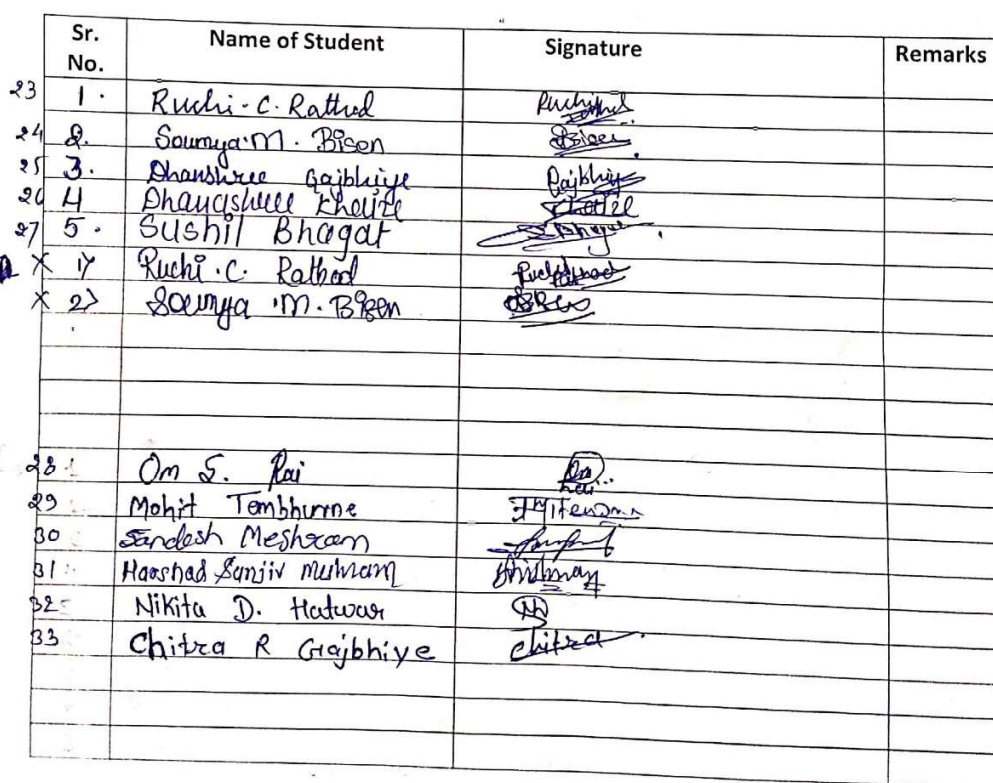 Sr. No. Name of Student Signature Remarks
23 1. Ruchi. C. Rathod Ruchi
24 2. Soumya. M. Bisen Bisen
25 3. Dhanshree Gajbhiye Gajbhiye
26 4 Dhanashree Khaire
27 5. Sushil Bhagat
X 1> Ruchi. C. Rathod
X 2> Soumya. M. Bisen
28 Om S. Rai Om Rai
29 Mohit Tembhurne
30 Sandesh Meshram
31 Harshad Sanjiv Meshram
32 Nikita D. Hatwar
33 Chitra R Gajbhiye Chitra